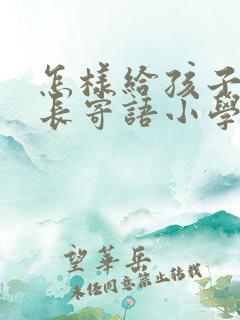 怎樣給孩子
長寄語小學
望華岳
未經同意禁止轉載